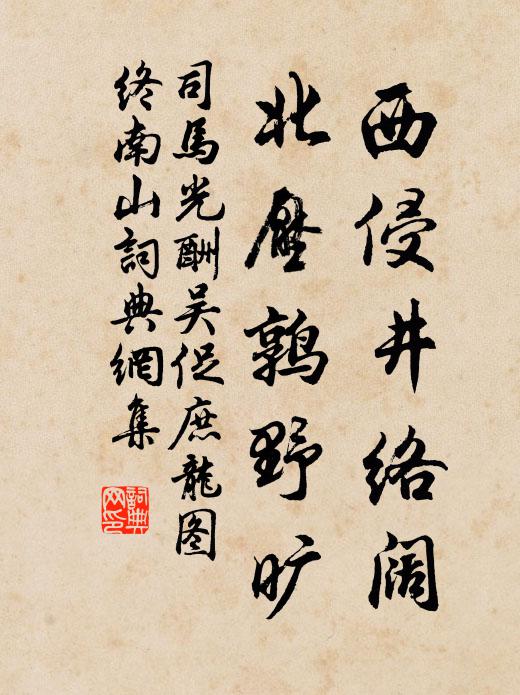 西侵井络阔
北压鹑野旷
司馬光酬吴仲庶龍图
终南山詞典網集
詞典网印